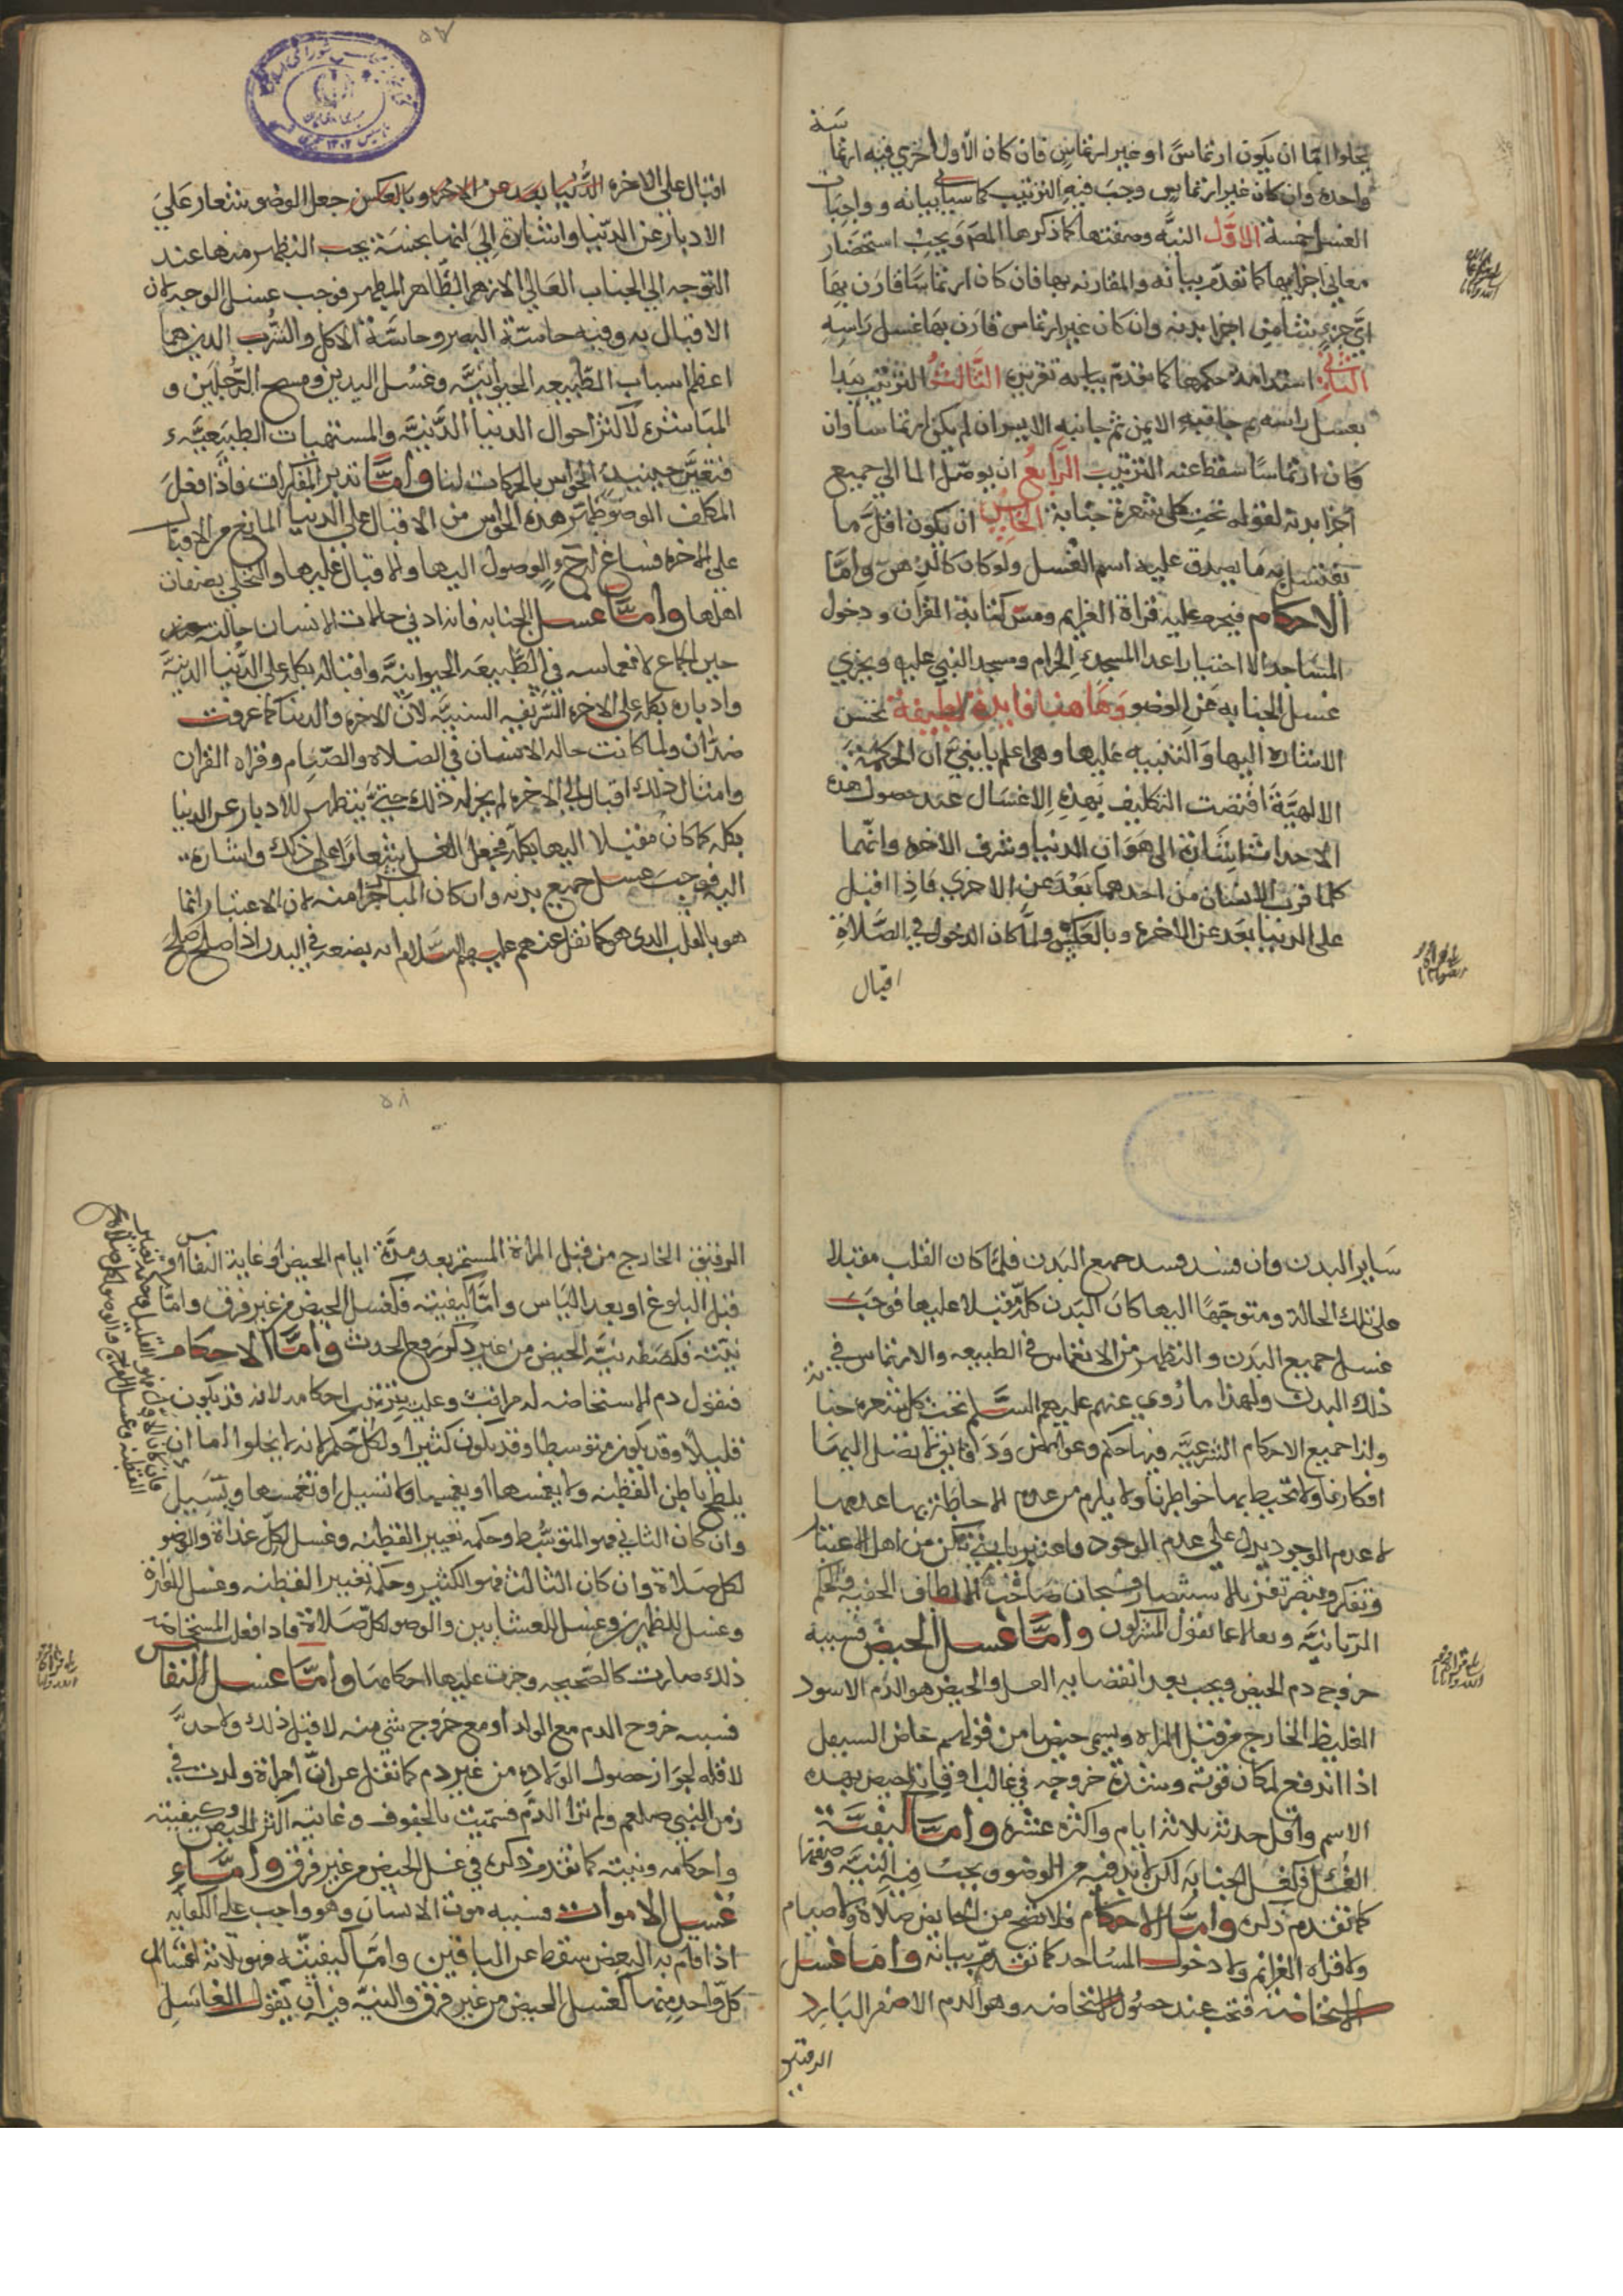 يخلوا اما ان يكون ارتماسًا او غير ارتماس فان كان الاول اجزي فيه ارتماسة
واحدة وان كان غير ارتماس وجب فيه الترتيب كما سياتي بيانه وواجبات
الغسل خمسة الاوّل النيّة وصفتها كما ذكرها المص ويجب استحضار
معاني اجزايها كما تقدّم بيانه والمقارنه بها فان كان ارتماسًا قارن بها
ايّ جزءٍ شا من اجزا بدنه وان كان غير ارتماس قارن بها غسل راسه
الثاني استدامة حكمها كما تقدّم بيانه تقريره الثالث الترتيب يبدا
بغسل راسه ثم جانبه الايمن ثم جانبه الايسر ان لم يكن ارتماسا وان
كان ارتماسًا سقط عنه الترتيب الرّابع ان يوصّل الما الي جميع
اجزا بدنه لقوله تحت كل شعرة جنابة الخامس ان يكون اقلّ ما
يغتسل به ما يصدق عليه اسم الغسل ولو كان كالدهن وامّا
الاحكام فيحرم عليه قراة العزايم ومسّ كتابة القران ودخول
المساجد الا اختيارا عدا المسجد الحرام ومسجد النبي عليه ويجزي
غسل الجنابه عن الوضو وهاهنا فايدة لطيفة تحسن
الاشارة اليها والتنبيه عليها وهي اعلم يا بنيّ ان الحكمة
الالهيّة اقتضت التكليف بهذه الاغسال عند حصول هذه
الاحداث اشارة الى هوان الدنيا وشرف الاخره وانّهما
كلما قرب الانسان من احدهما بعد عن الاخري فاذا اقبل
على الدنيا بعد عن الاخرة وبالعكس ولمّا كان الدخول في الصّلاة
اقبال
۵۷
اقبال على الاخره الدّنيا بعد عن الاخره وبالعكس جعل الوضو شعار عليَ
الادبار عن الدّنيا واشارة اليَ انها نجسَة يجب التطهر منها عند
التوجه الي الجناب العالي الازهر الطّاهر المطهر فوجب غسل الوجه لان
الاقبال به وفيه حاسّة البصر وحاسّة الاكل والشرب الذين هما
اعظم اسباب الطّبيعه الحيوانيّه وغسْل اليدين ومسح الرّجلين و
المباشرة لاكثر احوال الدنيا الدّنيّه والمستهيات الطبيعيّه
فتعيّن حينيذ الحواس بالحركات لنا وامّا تدبر المفكرات فاذا فعل
المكلف الوضو طهّر هذه الحواس من الاقبال علي الدنيا المانع من الاقبال
علي الاخره فساغ له ح الوصول اليها والاقبال عليها والتحلي بصفات
اهلها وامّا غسل الجنابه فانه ادني حالات الانسان حالته
حين الجماع لانغماسه في الطّبيعه الحيوانيّه واقباله بكله على الدّنيا الدنيّة
وادباره بكله على الاخره الشريفه السنيّه لانّ الاخره والدنيا كما عرفت
ضرّتان ولما كانت حاله الانسان في الصلاه والصّيام وقراه القران
وامثال ذلك اقبال الي الاخره لم يجز له ذلك حتيَّ يتطهر للادبار عن الدنيا
بكله كما كان مقبلا اليها بكله فجعل الغسل شعارًا على ذلك واشارة
اليه فوجب غسل جميع بدنه وان كان المباشر جزا منه لان الاعتبار انما
هو بالقلب الذي هو كما نقل عنهم عليهم السّلام انه بضعه في البدن اذا صلح صلح
ساير البدن وان فسد فسد جميع البدن فلمّا كان القلب مقبلا
على تلك الحالة ومتوجّها اليها كان البَدن كله مقبلا عليها فوجب
غسل جميع البدن والتطهر من الانغماس في الطبيعه والارتماس في
ذلك البدن ولهذا ما رُوي عنهم عليهم السّلم تحت كل شعره جنابة
ولذا جميع الاحكام الشرعيّه فيها حكم وغوامض ودقايق لا تصل اليها
افكارنا ولا تحيط بها خواطرنا ولا يلزم من عدم الاحاطة بها عدمها
لا عدم الوجود يدل علي عدم الوجود فاعتبر يا بنيّ تكن من اهل الاعتبار
وتفكر وتبصّر تفز بالاستبصار فسبحان صاحب الالطاف الخفيه والحكم
الربانيّه وتعالا عما يقول المشركون وامّا غسل الحيض فسببه
خروج دم الحيض ويجب بعد انقضايه الغسل والحيض هو الدم الاسود
الغليظ الخارج من قبل المراه ويسمي حيضا من قولهم حاض السيل
اذا اندفع لمكان قوته وشدّة خروجه في غالب اوقاته خص بهذه
الاسم واقل حدثه ثلاثه ايام واكثره عشره وامّا كيفيّة
الغسل فكغسل الجنابَه لكن لا بد فيه من الوضو ويجب فيه النيّه وصفتها
كما تقدم ذكره وامّا الاحكام فلا تصح من الحايض صلاة ولا صيام
ولا قراه العزايم ولا دخول المساجد كما تقدّم بيانه وامّا غسل
الاستحاضه فتجب عند حصول الاستحاضه وهو الدم الاصفر البارد
الرقيق
۵۸
الرقيق الخارج من قبل المراة المستمر بعد مدّة ايام الحيض او غاية النفاس او
قبل البلوغ او بعد الياس وامّا كيفيته فكغسل الحيض من غير فرق وامّا
نيّته فكصفه نيّه الحيض من غير ذكر رفع الحدث وامّا الاحكام
فنقول دم الاستحاضه له مراتب وعليه يترتب احكامه لانه قد يكون
قليلا وقد يكون متوسطا وقد يكون كثيرا ولكل حكم لانه لا يخلوا اما ان
يلطخ باطن القطنه ولا يغمسها او يغمسها ولا تسيل او تغمسها ويسيل
وان كان الثاني فهو المتوسّط وحكمه تغيير القطنه وغسل لكلّ غداة والوضو
لكل صلاة وان كان الثالث فهو الكثير وحكمه تغيير القطنه وغسل للغداة
وغسل للظهرين وغسل للعشايين والوضو لكل صلاة فاذا فعل المستحاضه
ذلك صارت كالصّحيحه وجرت عليها احكامها وامّا غسل النفاس
فسببه خروج الدم مع الولد او مع خروج شي منه لا قبل ذلك ولا حدّ
لاقله لجواز حصول الولاده من غير دم كما نقل عن انّ امراة ولدت في
زمن النبي صلعم ولم تر الدّم فسميت بالجفوف وغايته اكثر الحيض وكيفيته
واحكامه ونيته كما تقدم ذكره في غسل الحيض من غير فرق وامّا
غسل الاموات فسببه موت الانسان وهو واجب على الكفايه
اذا قام به البعض سقط عن الباقين وامّا كيفيته فهو ثلاثه اغسال
كلّ واحدٍ منها كغسل الحيض من غير فرق والنيّه فيه ان يقول الغاسل
فان كان الاول فهو القليل وحكمه تغيير
القطنه وغسل الفرج والوضو لكل صلاة